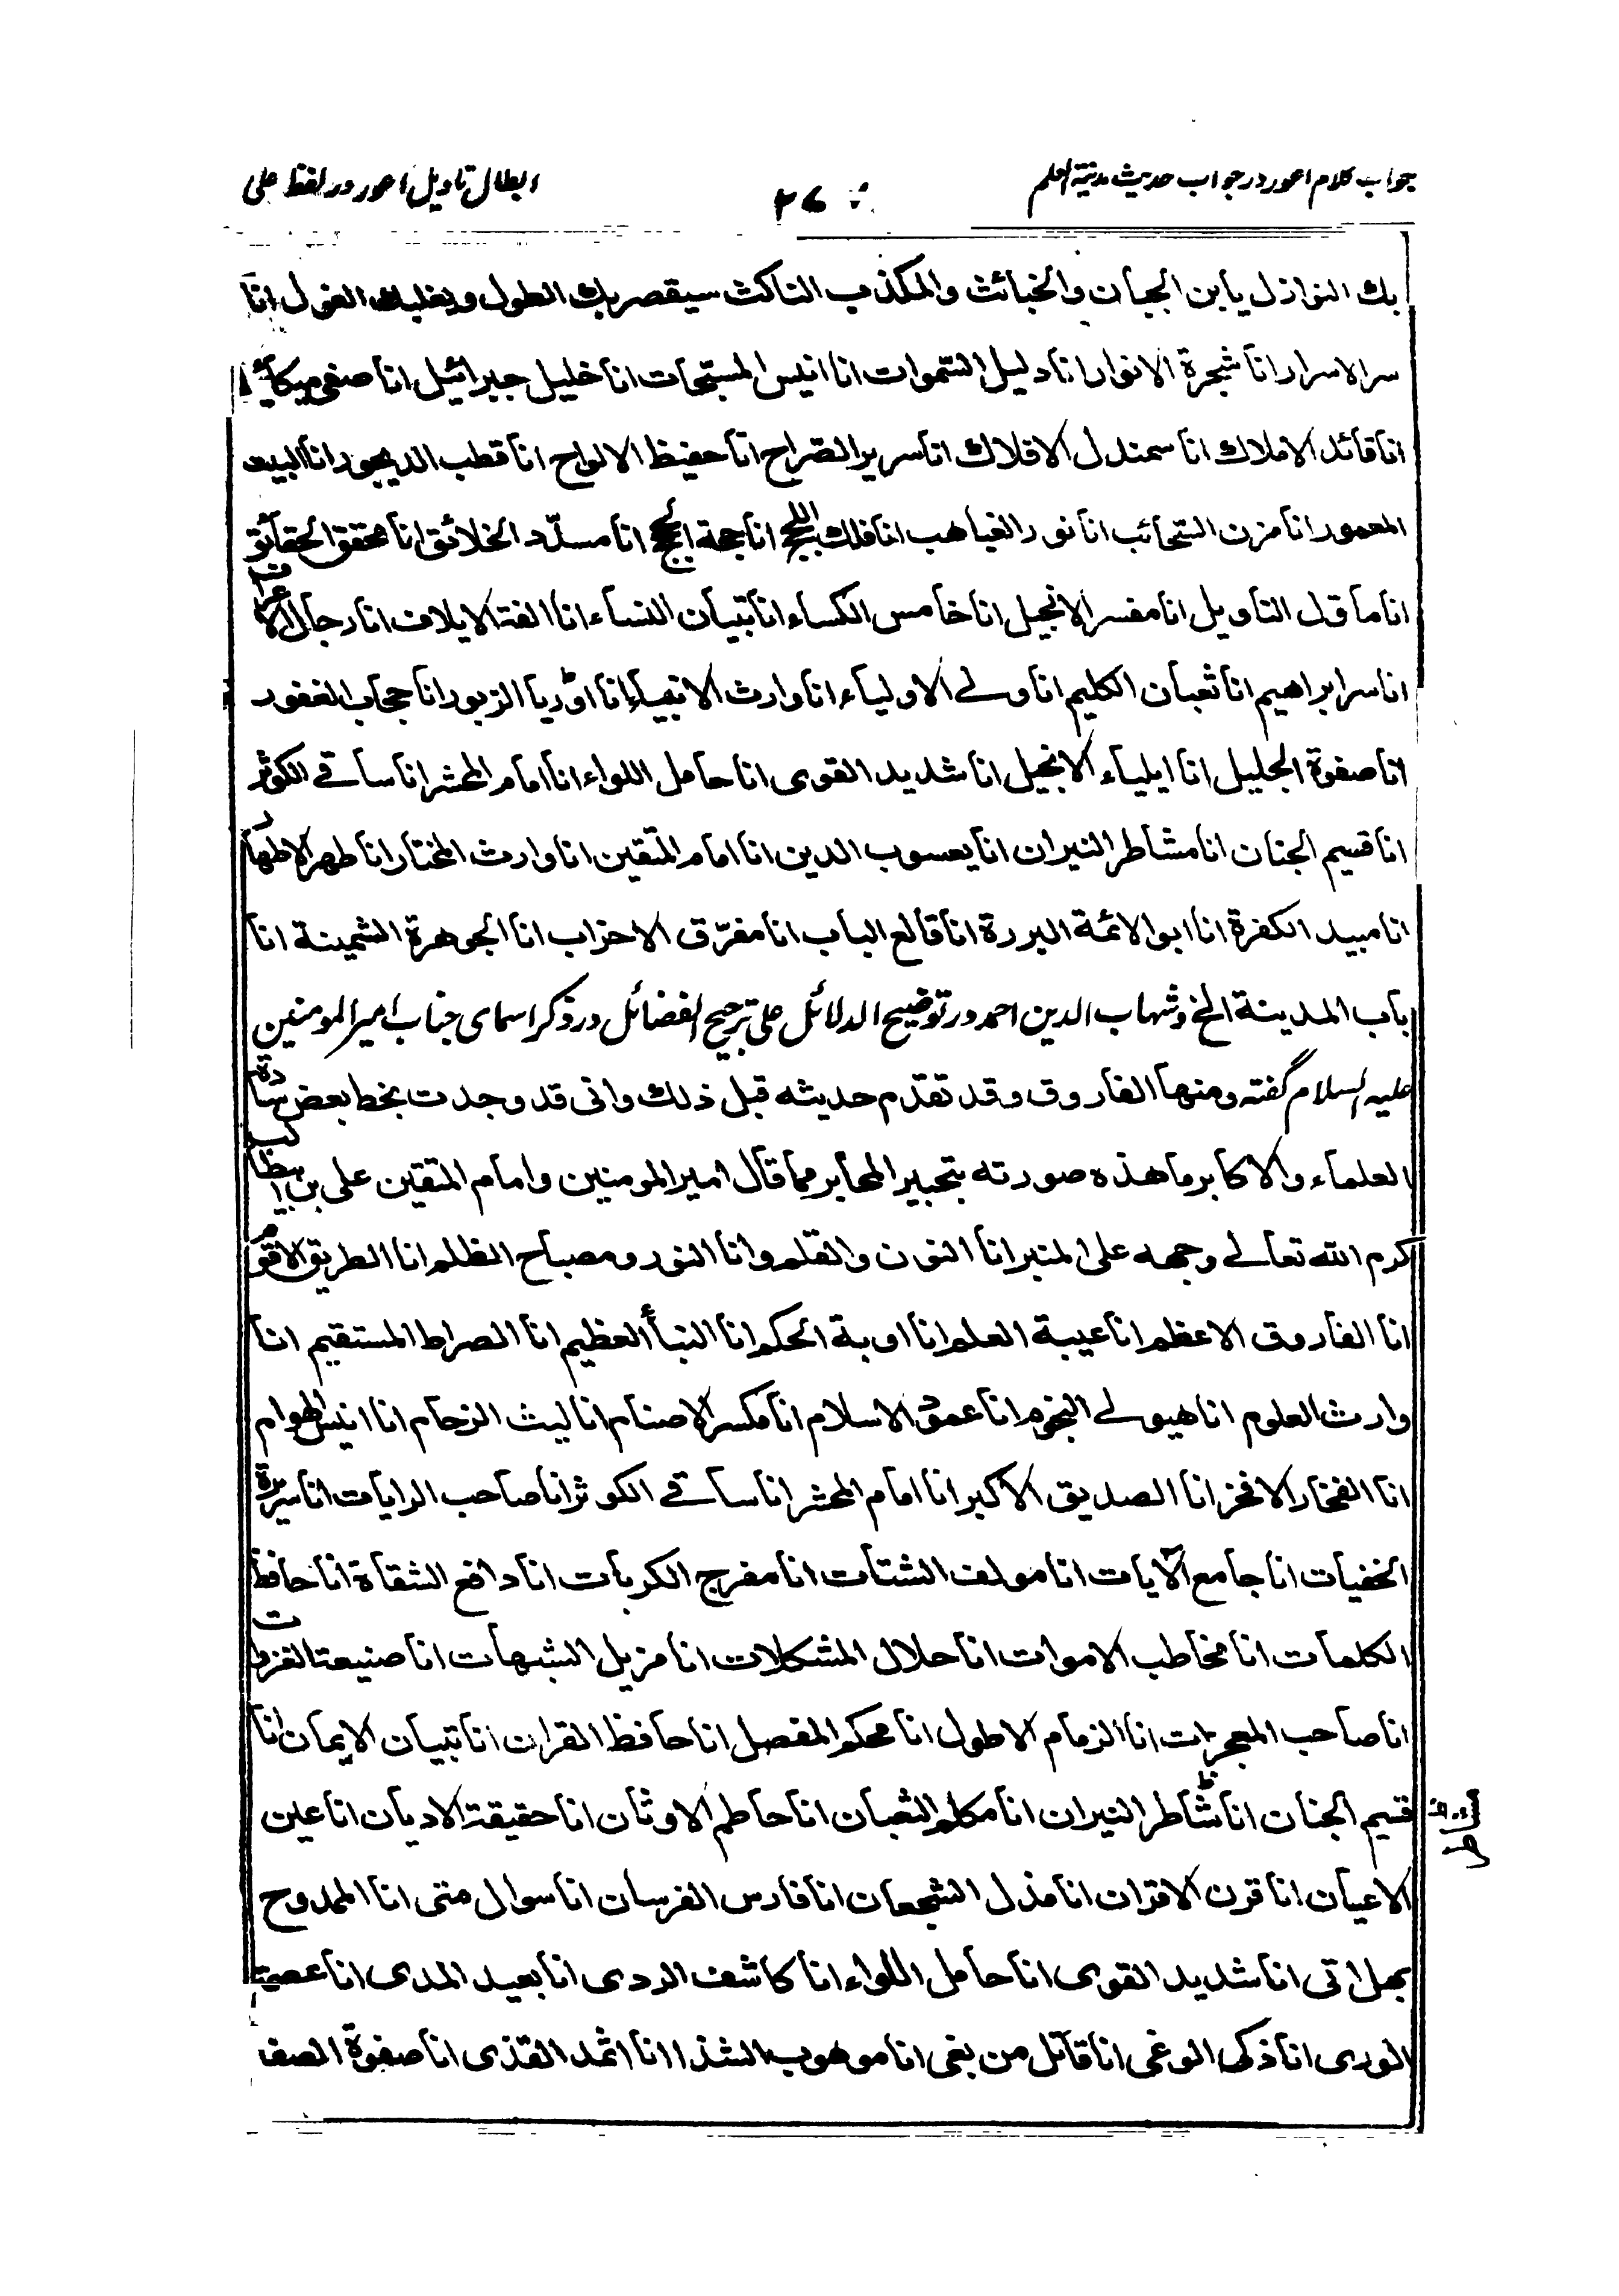 جواب کلام اعور در جواب حدیث مدینة العلم
ابطال تاویل اعور در لفظ علی
بك النوازل يا بن الجبان والخبائث والمكذب الناكث سيقصر بك الطول ويغلبك الغول انا
سر الاسرار انا شجرة الانوار انا دليل السّموات انا انيس المسبّحات انا خليل جبرائيل انا صفى ميكائيل
انا قائد الاملاك انا سمندل الافلاك انا سرير الصّراح انا حفيظ الالواح انا قطب الديجور انا البيت
المعمور انا مزن السّحائب انا نور الغياهب انا فلك اللجج انا حجة الحجج انا مسدّد الخلائق انا محقق الحقائق
انا ماوّل التاويل انا مفسر الانجيل انا خامس الكساء انا تبيان النساء انا الفة الايلاف انا رجال الاعراف
انا سر ابراهيم انا ثعبان الكليم انا ولے الاولياء انا وارث الانبياء انا اوريا الزبور انا حجاب الغفور
انا صفوة الجليل انا ايلياء الانجيل انا شديد القوى انا حامل اللواء انا امام المحشر انا ساقے الكوثر
انا قسيم الجنان انا مشاطر النيران انا يعسوب الدين انا امام المتّقين انا وارث المختار انا طهر الاطهار
انا مبيد الكفرة انا ابو الائمة البررة انا قالع الباب انا مفرّق الاحزاب انا الجوهرة الثمينة انا
باب المدينة الخ و شهاب الدين احمد در توضیح الدلائل علی ترجیح الفضائل در ذکر اسمای جناب امیر المومنین
علیه السلام گفته ومنها الفاروق وقد تقدّم حديثه قبل ذلك وانى قد وجدت بخط بعض سادة
العلماء والاكابر ما هذه صورته بتحبير المحابر مما قال امير المومنين وامام المتقين على بن ابيطالب
كرم الله تعالے وجهه على المنبر انا النون والقلم وانا النور ومصباح الظلم انا الطريق الاقوم
انا الفاروق الاعظم انا عيبة العلم انا اوبة الحكم انا النبأ العظيم انا الصراط المستقيم انا
وارث العلوم انا هيولے النجوم انا عمود الاسلام انا مكسر الاصنام انا ليث الزحام انا انيس الهوام
انا الفخار الافخر انا الصديق الاكبر انا امام المحشر انا ساقے الكوثر انا صاحب الرايات انا سريرة
الخفيات انا جامع الآيات انا مولف الشتات انا مفرج الكربات انا دافع الشقاة انا حافظ
الكلمات انا مخاطب الاموات انا حلال المشكلات انا مزيل الشبهات انا صنيعة الغزوات
انا صاحب المعجزات انا الزمام الاطول انا محكم المفصل انا حافظ القران انا تبيان الايمان انا
قسيم الجنان انا شاطر النيران انا مكلم الثعبان انا حاطم الاوثان انا حقيقة الاديان انا عين
الاعيان انا قرن الاقران انا مذل الشجعان انا فارس الفرسان انا سوال متى انا الممدوح
بهل اتى انا شديد القوى انا حامل اللواء انا كاشف الردى انا بعيد المدى انا عصمة
الورى انا ذكى الوغى انا قاتل من بغى انا موهوب الشذا انا اثمد القذى انا صفوة الصفا